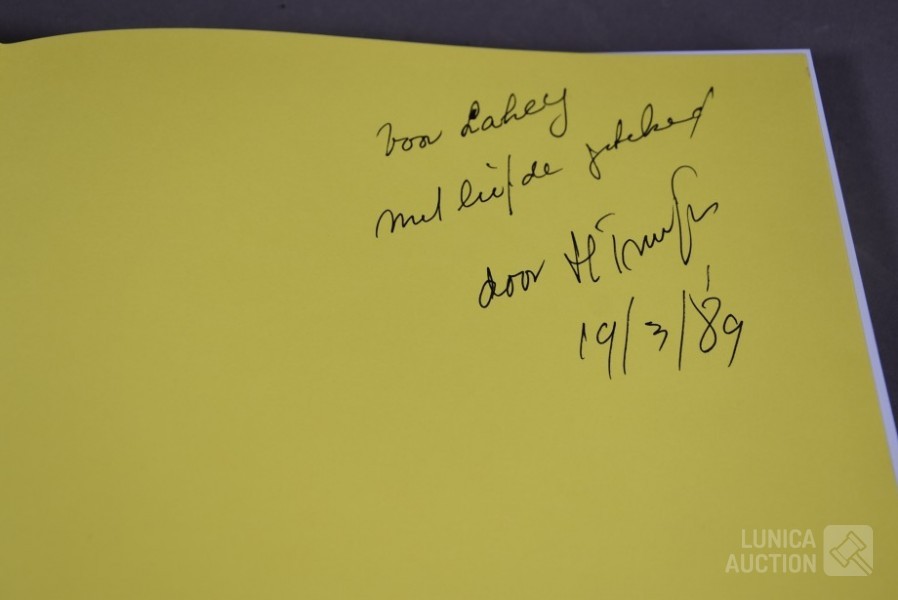 Voor Lakey
met liefde getekend
door H
19/3/'89
LUNICA
AUCTION